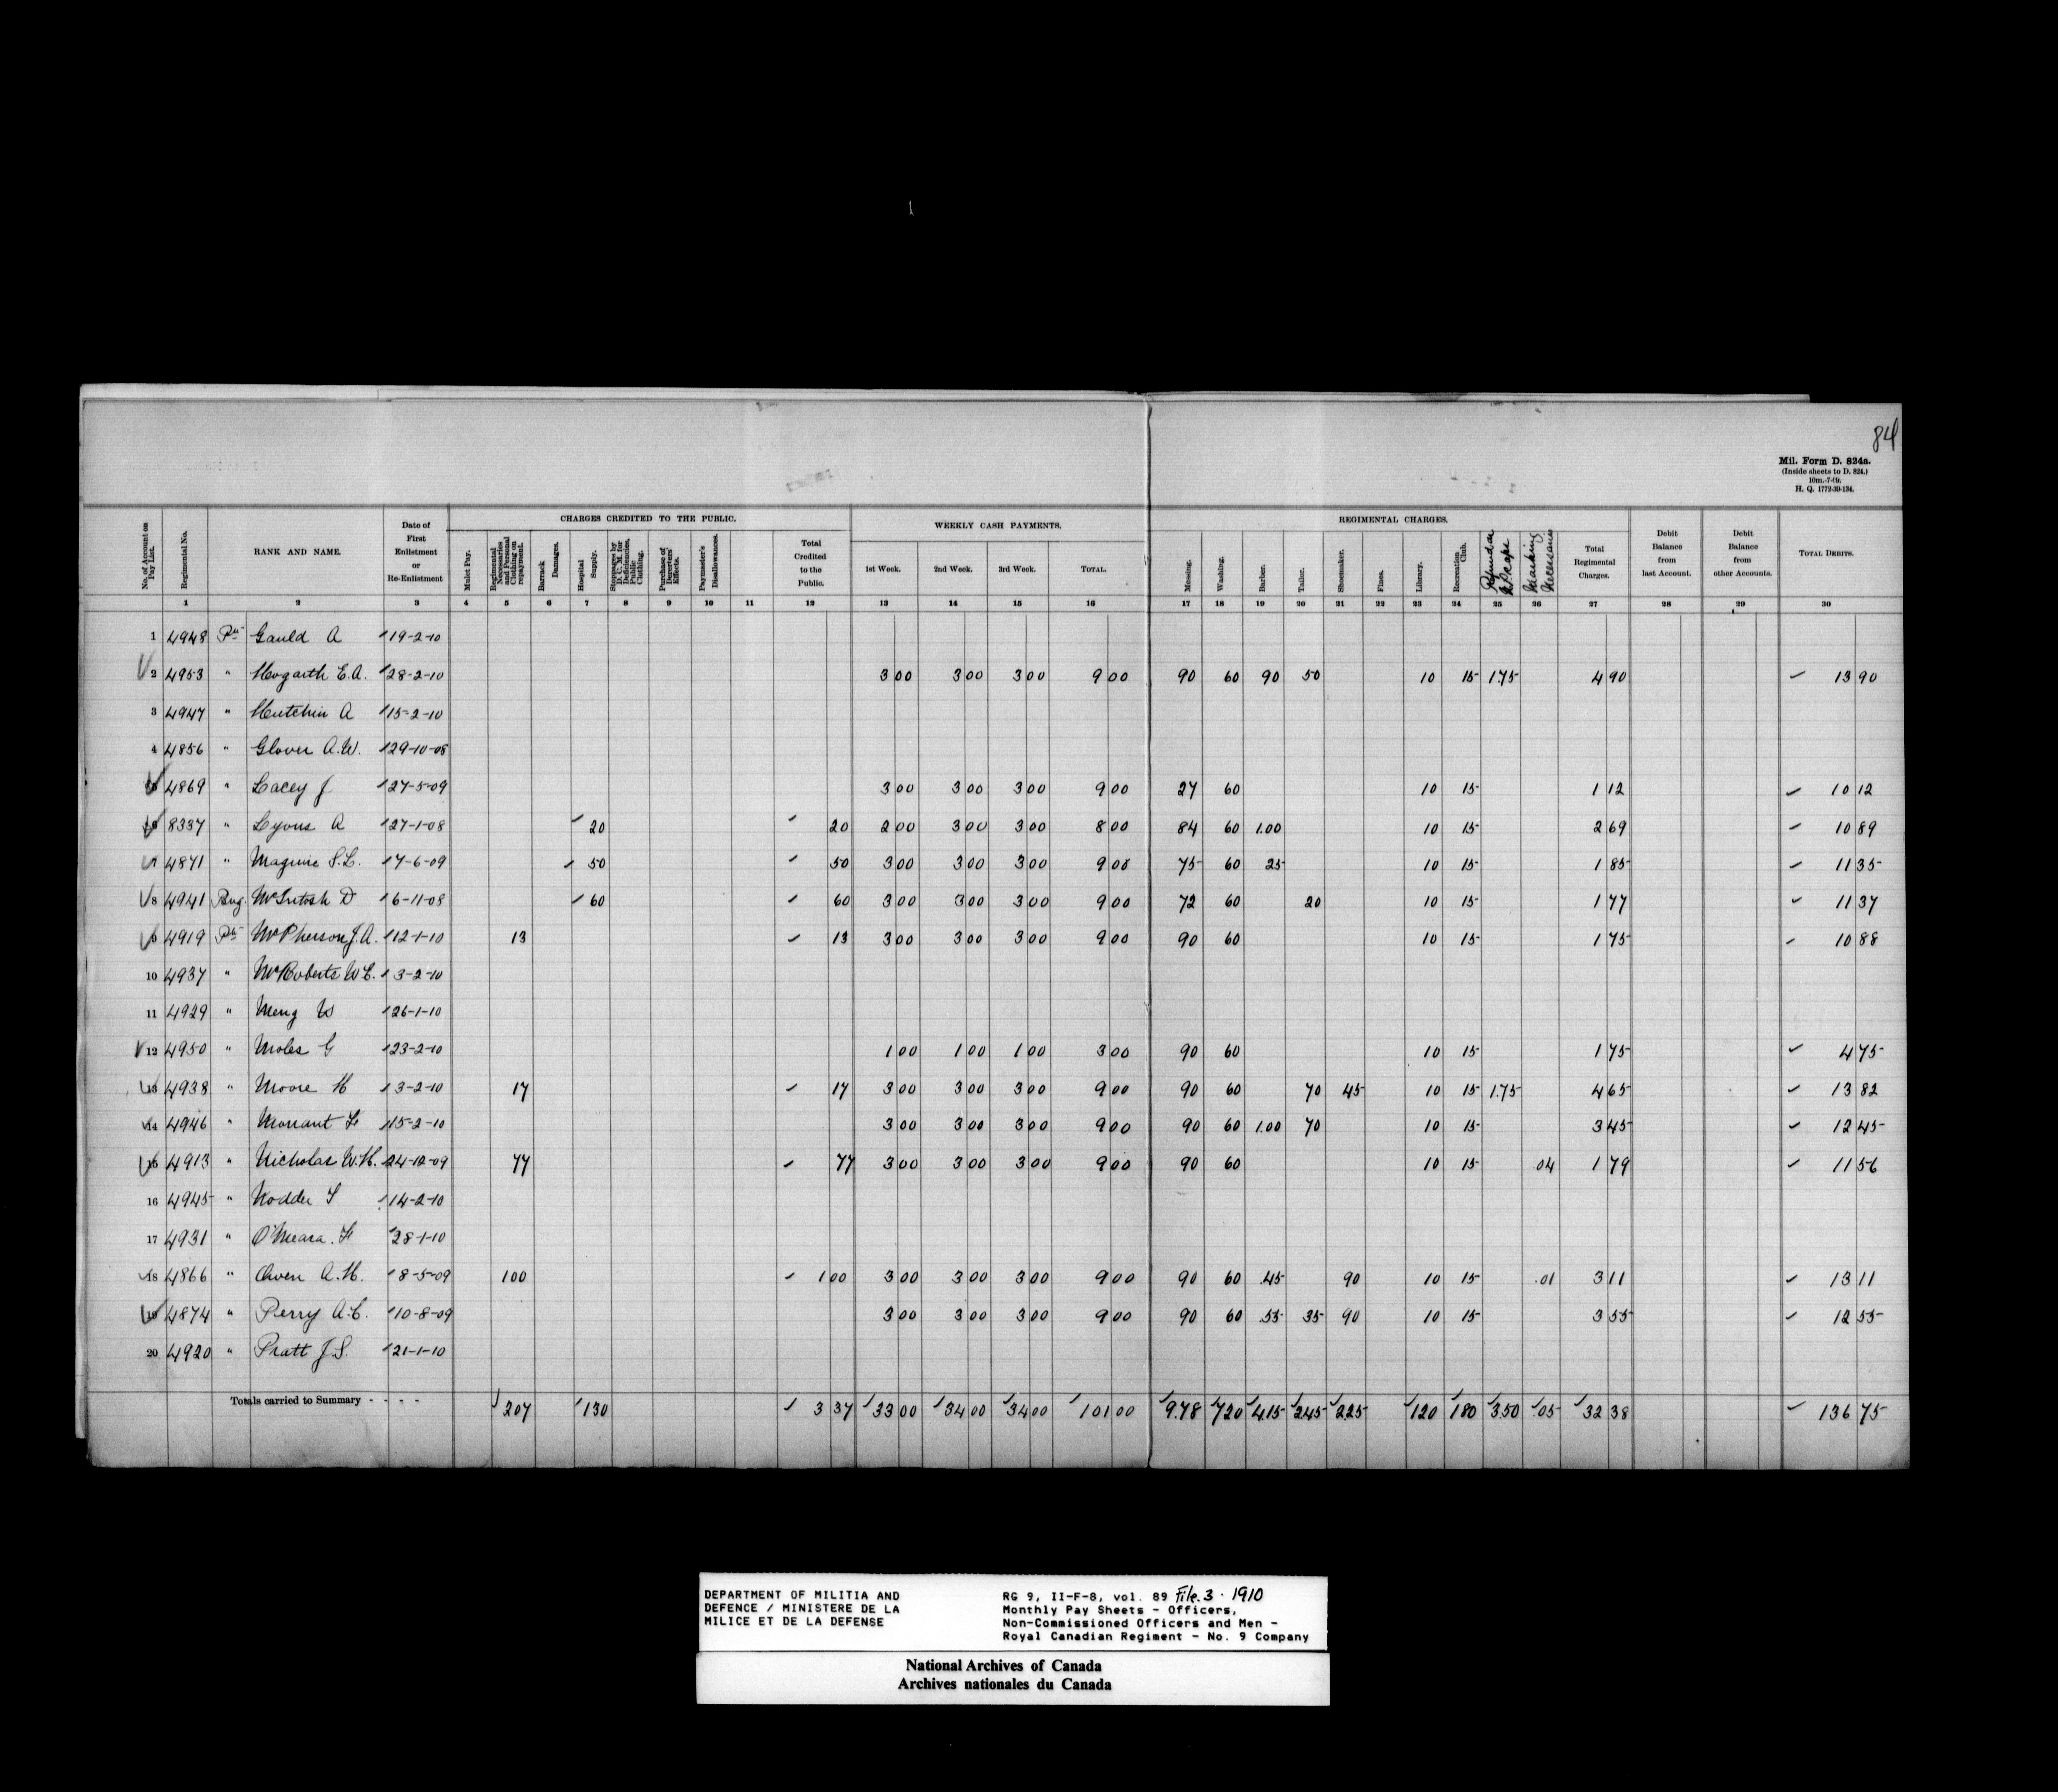 84
Mil. Form D. 824a.
(Inside sheets to D. 824.)
10m.-7-09.
H. Q. 1772-39-134.
CHARGES CREDITED TO THE PUBLIC. WEEKLY CASH PAYMENTS. REGIMENTAL CHARGES.
No. of Account on Pay List. Regimental No. RANK AND NAME. Date of First Enlistment or Re-Enlistment Mulct Pay. Regimental Necessaries and Personal Clothing on repayment. Barrack Damages. Hospital Supply. Stoppages by D. U. M. for Deficiencies, Public Clothing. Purchase of Deserters' Effects. Paymaster's Disallowances. Total Credited to the Public. 1st Week. 2nd Week. 3rd Week. TOTAL. Messing. Washing. Barber. Tailor. Shoemaker. Fines. Library. Recreation Club. Marking Necessaries Total Regimental Charges. Debit Balance from last Account. Debit Balance from other Accounts. TOTAL DEBITS.
1 2 3 4 5 6 7 8 9 10 11 12 13 14 15 16 17 18 19 20 21 22 23 24 25 26 27 28 29 30
1 4948 Pte Gauld A 19-2-10
2 4953 " Hogarth E.A. 28-2-10 3 00 3 00 3 00 9 00 90 60 90 50 10 15 1.75 4 90 13 90
3 4947 " Hutchin A 15-2-10
4 4856 " Glover A.W. 29-10-08
5 4869 " Lacey J 27-5-09 3 00 3 00 3 00 9 00 27 60 10 15 1 12 10 12
6 8337 " Lyons A 27-1-08 20 20 2 00 3 00 3 00 8 00 84 60 1.00 10 15 2 69 10 89
7 4871 " Maguire S.L. 7-6-09 50 50 3 00 3 00 3 00 9 00 75 60 25 10 15 1 85 11 35
8 4941 Bug. McIntosh D 6-11-08 60 60 3 00 3 00 3 00 9 00 72 60 20 10 15 1 77 11 37
9 4919 Pte McPherson J.A. 12-1-10 13 13 3 00 3 00 3 00 9 00 90 60 10 15 1 75 10 88
10 4937 " McRoberts W.C. 3-2-10
11 4929 " Meng W 26-1-10
12 4950 " Moles G 23-2-10 1 00 1 00 1 00 3 00 90 60 10 15 1 75 4 75
13 4938 " Moore H 3-2-10 17 17 3 00 3 00 3 00 9 00 90 60 70 45 10 15 1.75 4 65 13 82
14 4946 " Morrant F 15-2-10 3 00 3 00 3 00 9 00 90 60 1.00 70 10 15 3 45 12 45
15 4913 " Nicholas W.H. 24-12-09 77 77 3 00 3 00 3 00 9 00 90 60 10 15 .04 1 79 11 56
16 4945 " Nodder S 14-2-10
17 4931 " O'Meara. F 28-1-10
18 4866 " Owen A.H. 8-5-09 100 1 00 3 00 3 00 3 00 9 00 90 60 .45 90 10 15 .01 3 11 13 11
19 4874 " Perry A.C. 10-8-09 3 00 3 00 3 00 9 00 90 60 .55 35 90 10 15 3 55 12 55
20 4920 " Pratt J.S. 21-1-10
Totals carried to Summary - - - - 207 130 3 37 33 00 34 00 34 00 101 00 9.78 720 4.15 2.45 2.25 120 180 3.50 .05 32 38 136 75
DEPARTMENT OF MILITIA AND
DEFENCE / MINISTERE DE LA
MILICE ET DE LA DEFENSE
RG 9, II-F-8, vol. 89 File. 3 · 1910
Monthly Pay Sheets - Officers,
Non-Commissioned Officers and Men -
Royal Canadian Regiment - No. 9 Company
National Archives of Canada
Archives nationales du Canada